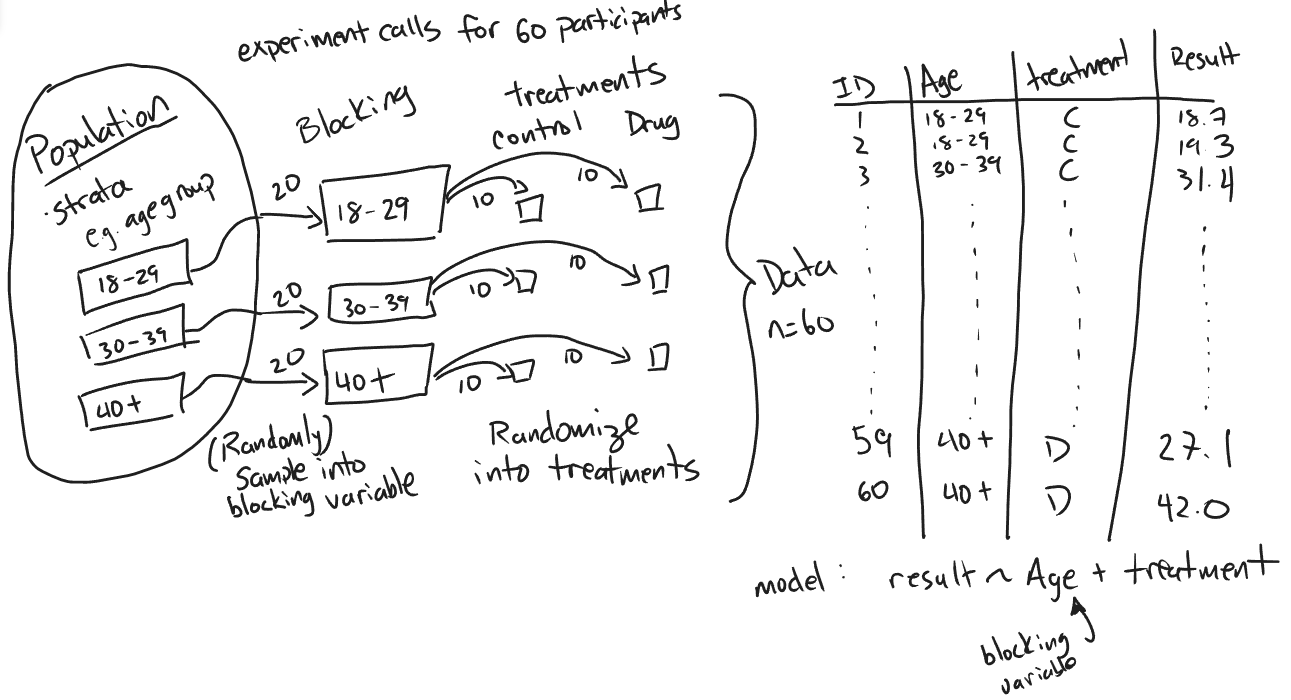 experiment calls for 60 participants
Population
· strata
e.g. age group
18-29
30-39
40+
20
20
20
(Randomly)
Sample into
blocking variable
Blocking
18-29
30-39
40+
treatments
control Drug
10 10
10 10
10 10
Randomize
into treatments
Data
n=60
ID Age treatment Result
1 18-29 C 18.7
2 18-29 C 19.3
3 30-39 C 31.4
59 40+ D 27.1
60 40+ D 42.0
model: result ~ Age + treatment
blocking
variable